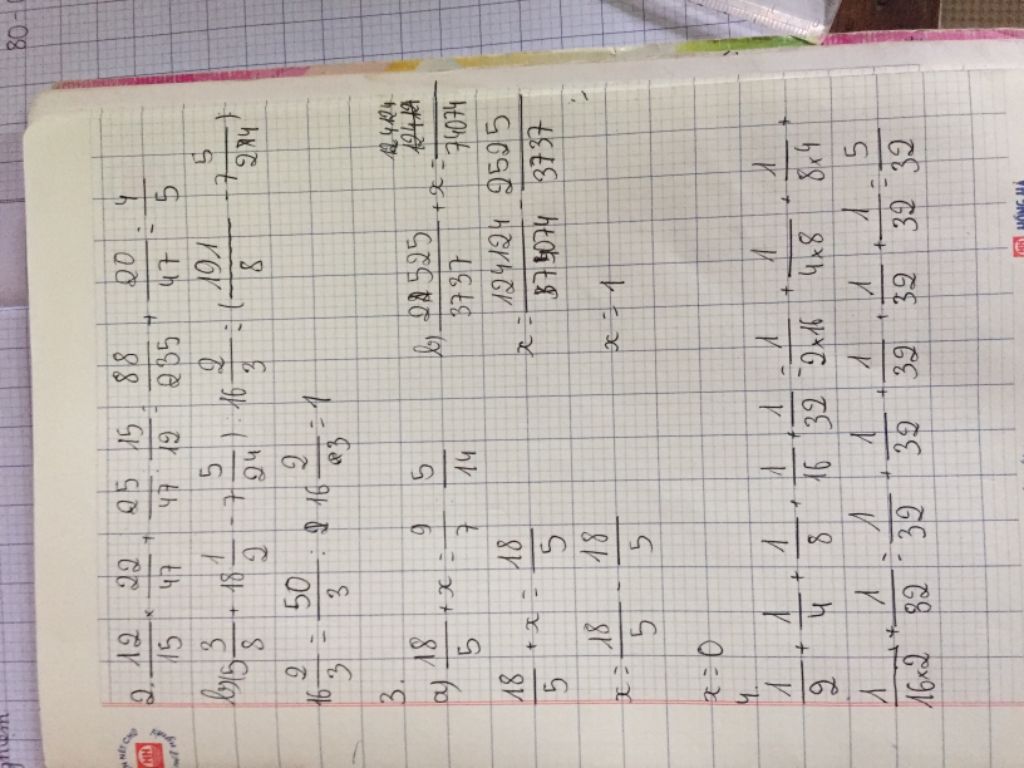 2. 12/15 × 22/47 + 25/47 : 15/12 = 88/235 + 20/47 = 4/5
b) (5 3/8 + 18 1/2 - 7 5/24) : 16 2/3 = (191/8 - 7 5/24) :
16 2/3 = 50/3 : 16 2/3 = 1
3.
a) 18/5 + x = 9/7 : 5/14
18/5 + x = 18/5
x = 18/5 - 18/5
x = 0
b) 2525/3737 + x = 124124/74074
x = 124124/74074 - 2525/3737
x = 1
4.
1/2 + 1/4 + 1/8 + 1/16 + 1/32 = 1/2×16 + 1/4×8 + 1/8×4 +
1/16×2 + 1/32 = 1/32 + 1/32 + 1/32 + 1/32 + 1/32 = 5/32
HỒNG HÀ
HH
80 -